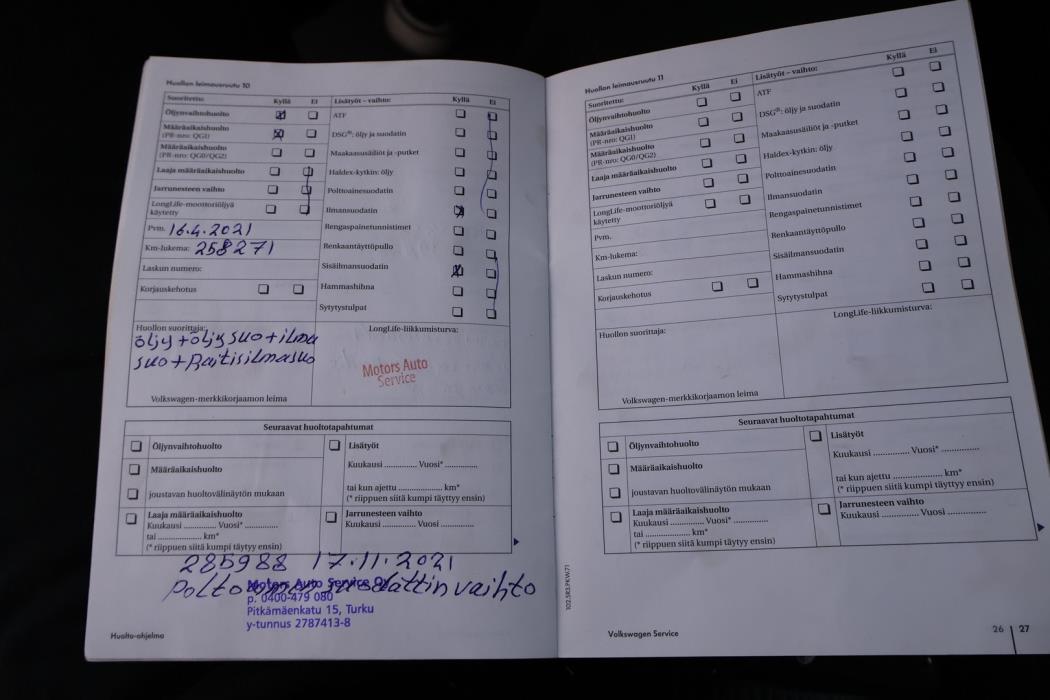 Huollon leimausruutu 10
Suoritettu: Kyllä Ei Lisätyöt – vaihto: Kyllä Ei
Öljynvaihtohuolto ATF
Määräaikaishuolto
(PR-nro: QG1) DSG®: öljy ja suodatin
Määräaikaishuolto
(PR-nro: QG0/QG2) Maakaasusäiliöt ja -putket
Laaja määräaikaishuolto Haldex-kytkin: öljy
Jarrunesteen vaihto Polttoainesuodatin
LongLife-moottoriöljyä
käytetty Ilmansuodatin
Pvm. 16.4.2021 Rengaspainetunnistimet
Km-lukema: 258271 Renkaantäyttöpullo
Laskun numero: Sisäilmansuodatin
Korjauskehotus Hammashihna
Sytytystulpat
Huollon suorittaja: LongLife-liikkumisturva:
öljy+öljysuo+ilma
suo+Raitisilmasuo
Motors Auto
Service
Volkswagen-merkkikorjaamon leima
Seuraavat huoltotapahtumat
Öljynvaihtohuolto Lisätyöt
Määräaikaishuolto Kuukausi .............. Vuosi* ..............
joustavan huoltovälinäytön mukaan tai kun ajettu ..................... km*
(* riippuen siitä kumpi täyttyy ensin)
Laaja määräaikaishuolto Jarrunesteen vaihto
Kuukausi .............. Vuosi* .............. Kuukausi .............. Vuosi ..............
tai ..................... km*
(* riippuen siitä kumpi täytyy ensin)
285988 17.11.2021
vaihto
Motors Auto Service Oy
p. 0400-479 080
Pitkämäenkatu 15, Turku
y-tunnus 2787413-8
Huolto-ohjelma
Huollon leimausruutu 11
Suoritettu: Kyllä Ei Lisätyöt – vaihto: Kyllä Ei
Öljynvaihtohuolto ATF
Määräaikaishuolto
(PR-nro: QG1) DSG®: öljy ja suodatin
Määräaikaishuolto
(PR-nro: QG0/QG2) Maakaasusäiliöt ja -putket
Laaja määräaikaishuolto Haldex-kytkin: öljy
Jarrunesteen vaihto Polttoainesuodatin
LongLife-moottoriöljyä
käytetty Ilmansuodatin
Pvm. Rengaspainetunnistimet
Km-lukema: Renkaantäyttöpullo
Laskun numero: Sisäilmansuodatin
Korjauskehotus Hammashihna
Sytytystulpat
Huollon suorittaja: LongLife-liikkumisturva:
Volkswagen-merkkikorjaamon leima
Seuraavat huoltotapahtumat
Öljynvaihtohuolto Lisätyöt
Määräaikaishuolto Kuukausi .............. Vuosi* ..............
joustavan huoltovälinäytön mukaan tai kun ajettu ..................... km*
(* riippuen siitä kumpi täyttyy ensin)
Laaja määräaikaishuolto Jarrunesteen vaihto
Kuukausi .............. Vuosi* .............. Kuukausi .............. Vuosi ..............
tai ..................... km*
(* riippuen siitä kumpi täytyy ensin)
102.5R3.PKW.71
Volkswagen Service 26 27